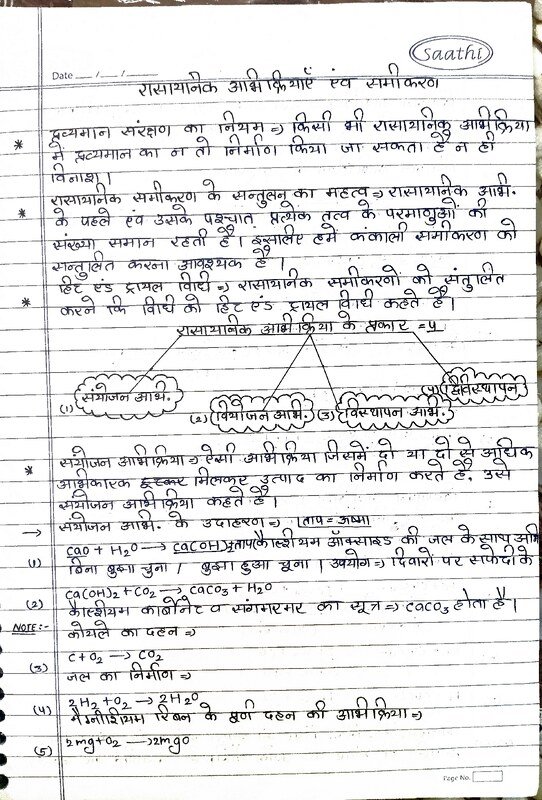 saathi
Date __/__/__
रासायनिक अभिक्रियाएँ एवं समीकरण
* द्रव्यमान संरक्षण का नियम => किसी भी रासायनिक अभिक्रिया
में द्रव्यमान का न तो निर्माण किया जा सकता है न ही
विनाश।
* रासायनिक समीकरण के सन्तुलन का महत्व => रासायनिक अभि.
के पहले एवं उसके पश्चात प्रत्येक तत्व के परमाणुओं की
संख्या समान रहती है। इसलिए हमें कंकाली समीकरण को
सन्तुलित करना आवश्यक है।
* हिट एंड ट्रायल विधि => रासायनिक समीकरणों को संतुलित
करने कि विधि को हिट एंड ट्रायल विधि कहते है।
रासायनिक अभिक्रिया के प्रकार = 4
(1) संयोजन अभि.
(2) वियोजन अभि.
(3) विस्थापन अभि.
(4) द्विविस्थापन
* संयोजन अभिक्रिया => ऐसी अभिक्रिया जिसमें दो या दो से अधिक
अभिकारक मिलकर उत्पाद का निर्माण करते है, उसे
संयोजन अभिक्रिया कहते है।
→ संयोजन अभि. के उदाहरण => ताप = ऊष्मा
(1) cao + H₂O → ca(OH)₂+ताप(कैल्शियम ऑक्साइड की जल के साथ अभि
बिना बुझा चुना / बुझा हुआ चूना / उपयोग => दिवारो पर सफेदी के
(2) ca(OH)₂ + CO₂ → caco₃ + H₂O
NOTE:- कैल्शियम कार्बोनेट व संगमरमर का सूत्र => caco₃ होता है।
कोयले का दहन =>
(3) c + O₂ → CO₂
जल का निर्माण =>
(4) 2H₂ + O₂ → 2H₂O
मैग्नीशियम रिबन के पूर्ण दहन की अभिक्रिया =>
(5) 2mg+O₂ → 2mgo
Page No.